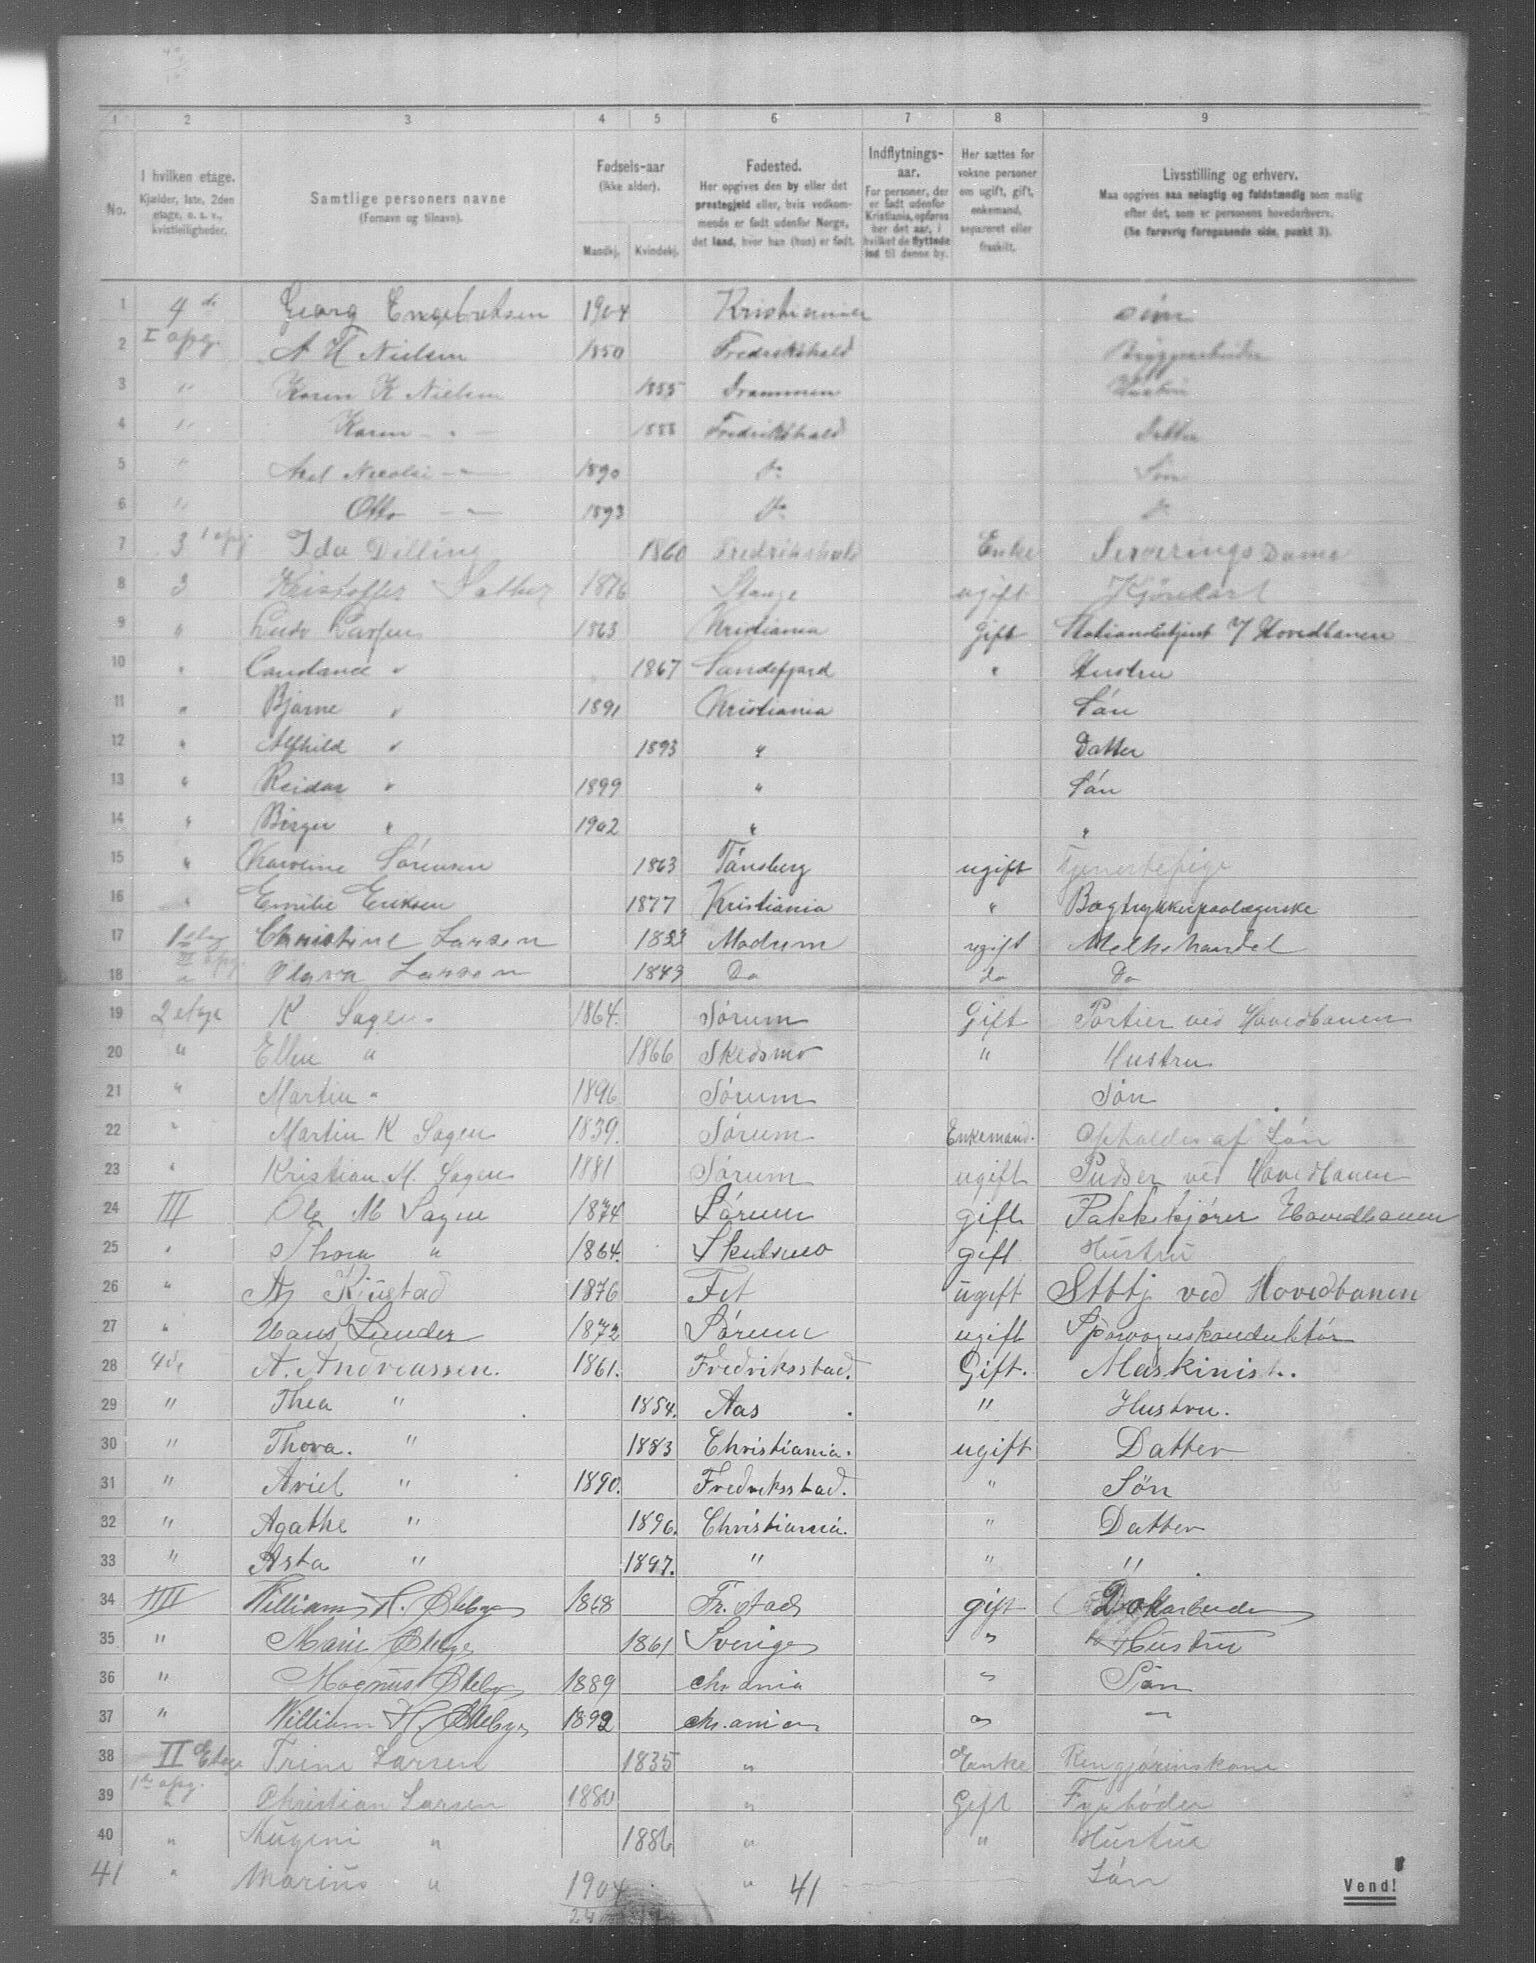 1 2 3 4 5 6 7 8 9
No. I hvilken etage. Kjælder, 1ste, 2den etage, o. s. v., kvistleiligheder. Samtlige personers navne (Fornavn og tilnavn). Fødsels-aar (ikke alder). Mandkj. Kvindekj. Fødested. Her opgives den by eller det prestegjeld eller, hvis vedkommende er født udenfor Norge, det land, hvor han (hun) er født. Indflytnings-aar. For personer, der er født udenfor Kristiania, opføres her det aar, i hvilket de flyttede ind til denne by. Her sættes for voksne personer om ugift, gift, enkemand, separeret eller fraskilt. Livsstilling og erhverv. Maa opgives saa nøiagtig og fuldstændig som mulig efter det, som er personens hovederhverv. (Se forøvrig foregaaende side, punkt 3).
1 4de Georg Engebretsen 1904 Kristiania Søn
2 I opg. A H Nielsen 1850 Fredrikshald Bryggearbeider
3 " Karen K Nielsen 1855 Drammen Hustru
4 " Karen - " - 1888 Fredrikshald Datter
5 " Axel Nicolai - " - 1890 do Søn
6 " Otto - " - 1893 do do
7 3 1 opg. Ida Dilling 1860 Fredrikshald Enke Serverings Dame
8 3 Kristoffer Sæther 1876 Stange ugift Kjørekarl
9 " Ludv Larsen 1863 Kristiania gift Stationsbetjent v/ Hovedbanen
10 " Constance " 1867 Sandefjord " Hustru
11 " Bjarne " 1891 Kristiania Søn
12 " Alfhild " 1893 " Datter
13 " Reidar " 1899 " Søn
14 " Birger " 1902 " "
15 " Karoline Sørensen 1863 Tønsberg ugift Tjenestepige
16 " Emilie Eriksen 1877 Kristiania " Bogtrykkerpaalægerske
17 1ste etag Christine Larsen 1833 Modum ugift Melkehandel
18 III opg. " Olava Larsen 1843 Do do Do
19 2 etage K Sagen 1864 Sørum Gift Portier ved Hovedbanen
20 " Ellen " 1866 Skedsmo " Hustru
21 " Martin " 1896 Sørum Søn
22 " Martin K Sagen 1839 Sørum Enkemand. Opholdes af Søn
23 " Kristian M. Sagen 1881 Sørum ugift Pudser ved Hovedbanen
24 III Ole M Sagen 1874 Sørum gift Pakkekjører Hovedbanen
25 " Thora " 1864 Skedsmo gift Hustru
26 " A Kjustad 1876 Fet ugift Stbtj ved Hovedbanen
27 " Hans Lunder 1872 Sørum ugift Sporvognskonduktør
28 4de A. Andreassen. 1861. Fredriksstad. Gift. Maskinist.
29 " Thea " 1854. Aas " Hustru.
30 " Thora. " 1883 Christiania. ugift Datter
31 " Ariel " 1890. Fredriksstad. " Søn
32 " Agathe " 1896. Christiania. " Datter
33 " Asta " 1897. " " "
34 IIII William H. Økeby 1868 Fr. stad gift Dokarbeider
35 " Marie Økeby 1861 Sverige " Hustru
36 " Magnus Økeby 1889 chr ania " Søn
37 " William H. Økeby 1892 chr. ania " "
38 II Etage Trine Larsen 1835 " Enke Rengjøringskone
39 1ste opg. " Christian Larsen 1880 " Gift Fyrbøder
40 " Augeni " 1886 " " Hustru
41 " Marius " 1904 " 41 Søn
Vend!